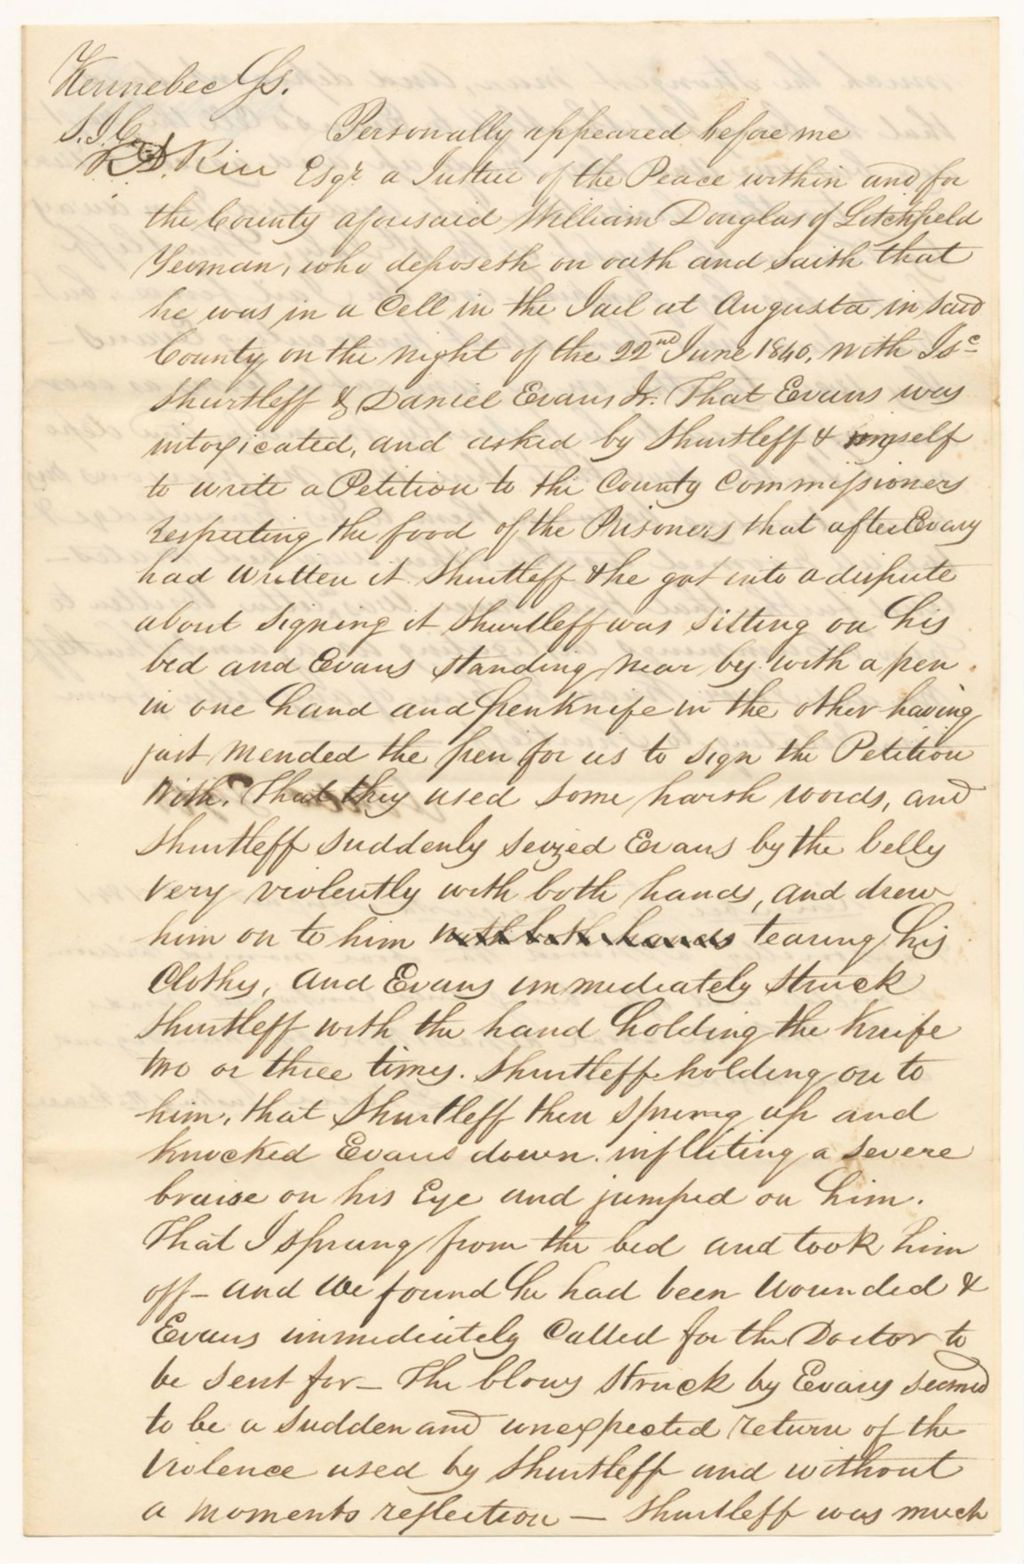 Kennebec Ss.
Personally appeared before me
R. D. Rice Esqr. a Justice of the Peace within and for
the County aforesaid William Douglas of Litchfield
Yeoman, who deposeth on oath and saith that
he was in a Cell in the Jail at Augusta in said
County on the night of the 22nd June 1840, with Isc
Shurtleff & Daniel Evans Jr. That Evans was
intoxicated, and asked by Shurtleff & myself
to write a Petition to the County Commissioners
respecting the food of the Prisoners that after Evans
had written it Shurtleff & he got into a dispute
about signing it Shurtleff was sitting on his
bed and Evans standing near by with a pen
in one hand and penknife in the other having
just mended the pen for us to sign the Petition
with. That they used some harsh words, and
Shurtleff suddenly seized Evans by the belly
very violently with both hands, and drew
him on to him with both hands tearing his
Clothes, and Evans immediately struck
Shurtleff with the hand holding the Knife
two or three times. Shurtleff holding on to
him, that Shurtleff then sprung up and
knocked Evans down inflliting a severe
bruise on his Eye and jumped on him.
That I sprung from the bed and took him
off - and we found he had been wounded &
Evans immediately Called for the Doctor to
be sent for - The blows struck by Evans seemed
to be a sudden and unexpected return of the
violence used by Shurtleff and without
a moments reflection - Shurtleff was much